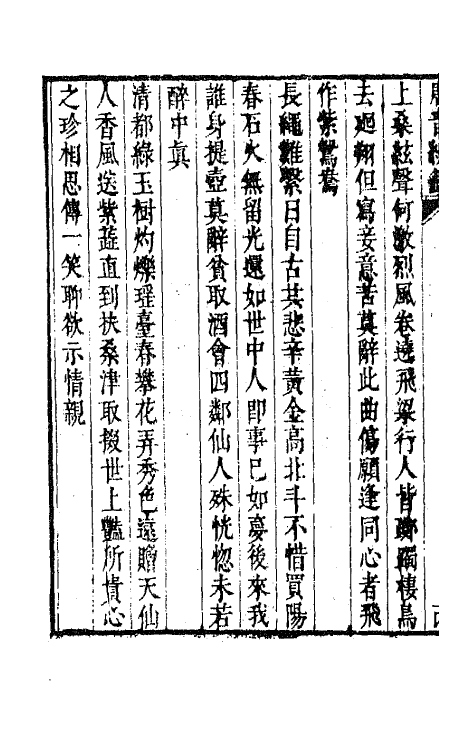 上桑絃聲何激烈風卷遶飛梁行人皆躑躅棲鳥
去廻翔但寫妾意苦莫辭此曲傷願逢同心者飛
作紫鴛鴦
長繩難繫日自古共悲辛黃金高北斗不惜買陽
春石火無留光還如世中人即事已如夢後來我
誰身提壺莫辭貧取酒會四鄰仙人殊恍惚未若
醉中眞
清都綠玉樹灼爍瑶臺春攀花弄秀色遠贈天仙
人香風送紫蕋直到扶桑津取掇世上豔所貴心
之珍相思傳一笑聊欲示情親